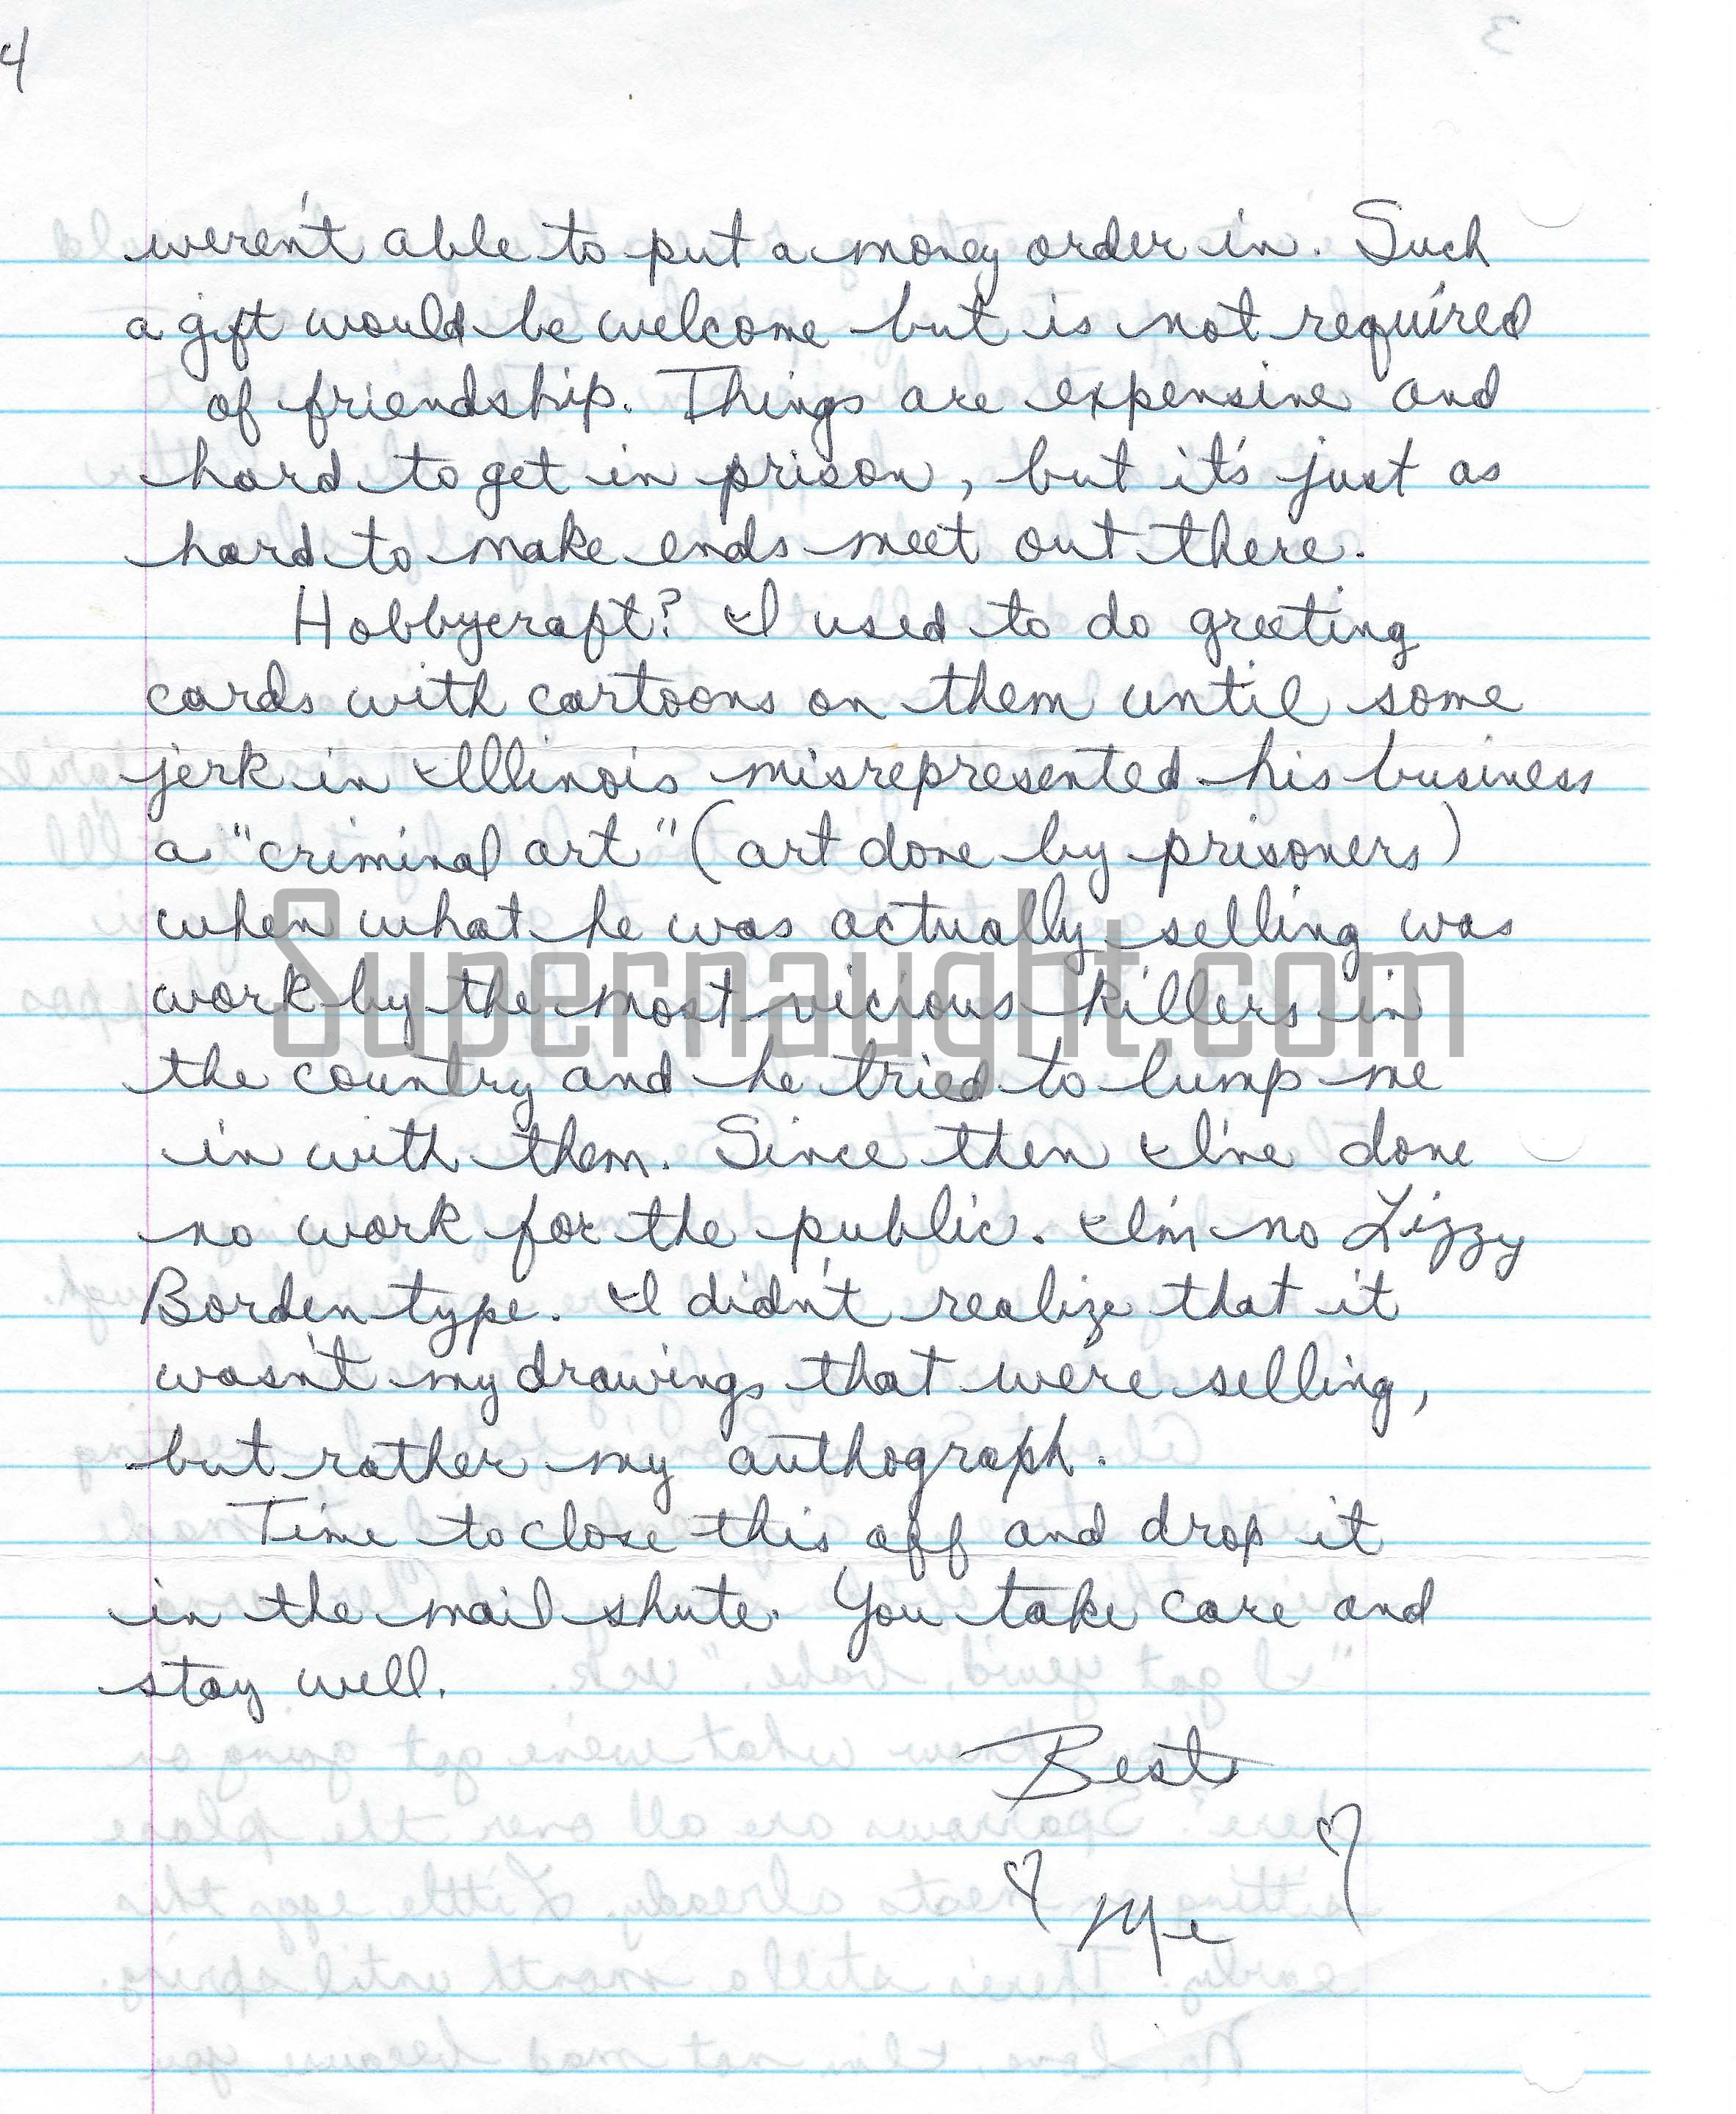 4
weren't able to put a money order in. Such
a gift would be welcome but is not required
of friendship. Things are expensive and
hard to get in prison, but it's just as
hard to make ends meet out there.
Hobbycraft? I used to do greeting
cards with cartoons on them until some
jerk in Illinois misrepresented his business
a "criminal art" (art done by prisoners)
when what he was actually selling was
work by the most vicious killers in
Supernaught.com
the country and he tried to lump me
in with them. Since then I've done
no work for the public. I'm no Lizzy
Borden type. I didn't realize that it
wasn't my drawings that were selling,
but rather my authograph.
Time to close this off and drop it
in the mail shute. You take care and
stay well.
Best
Me